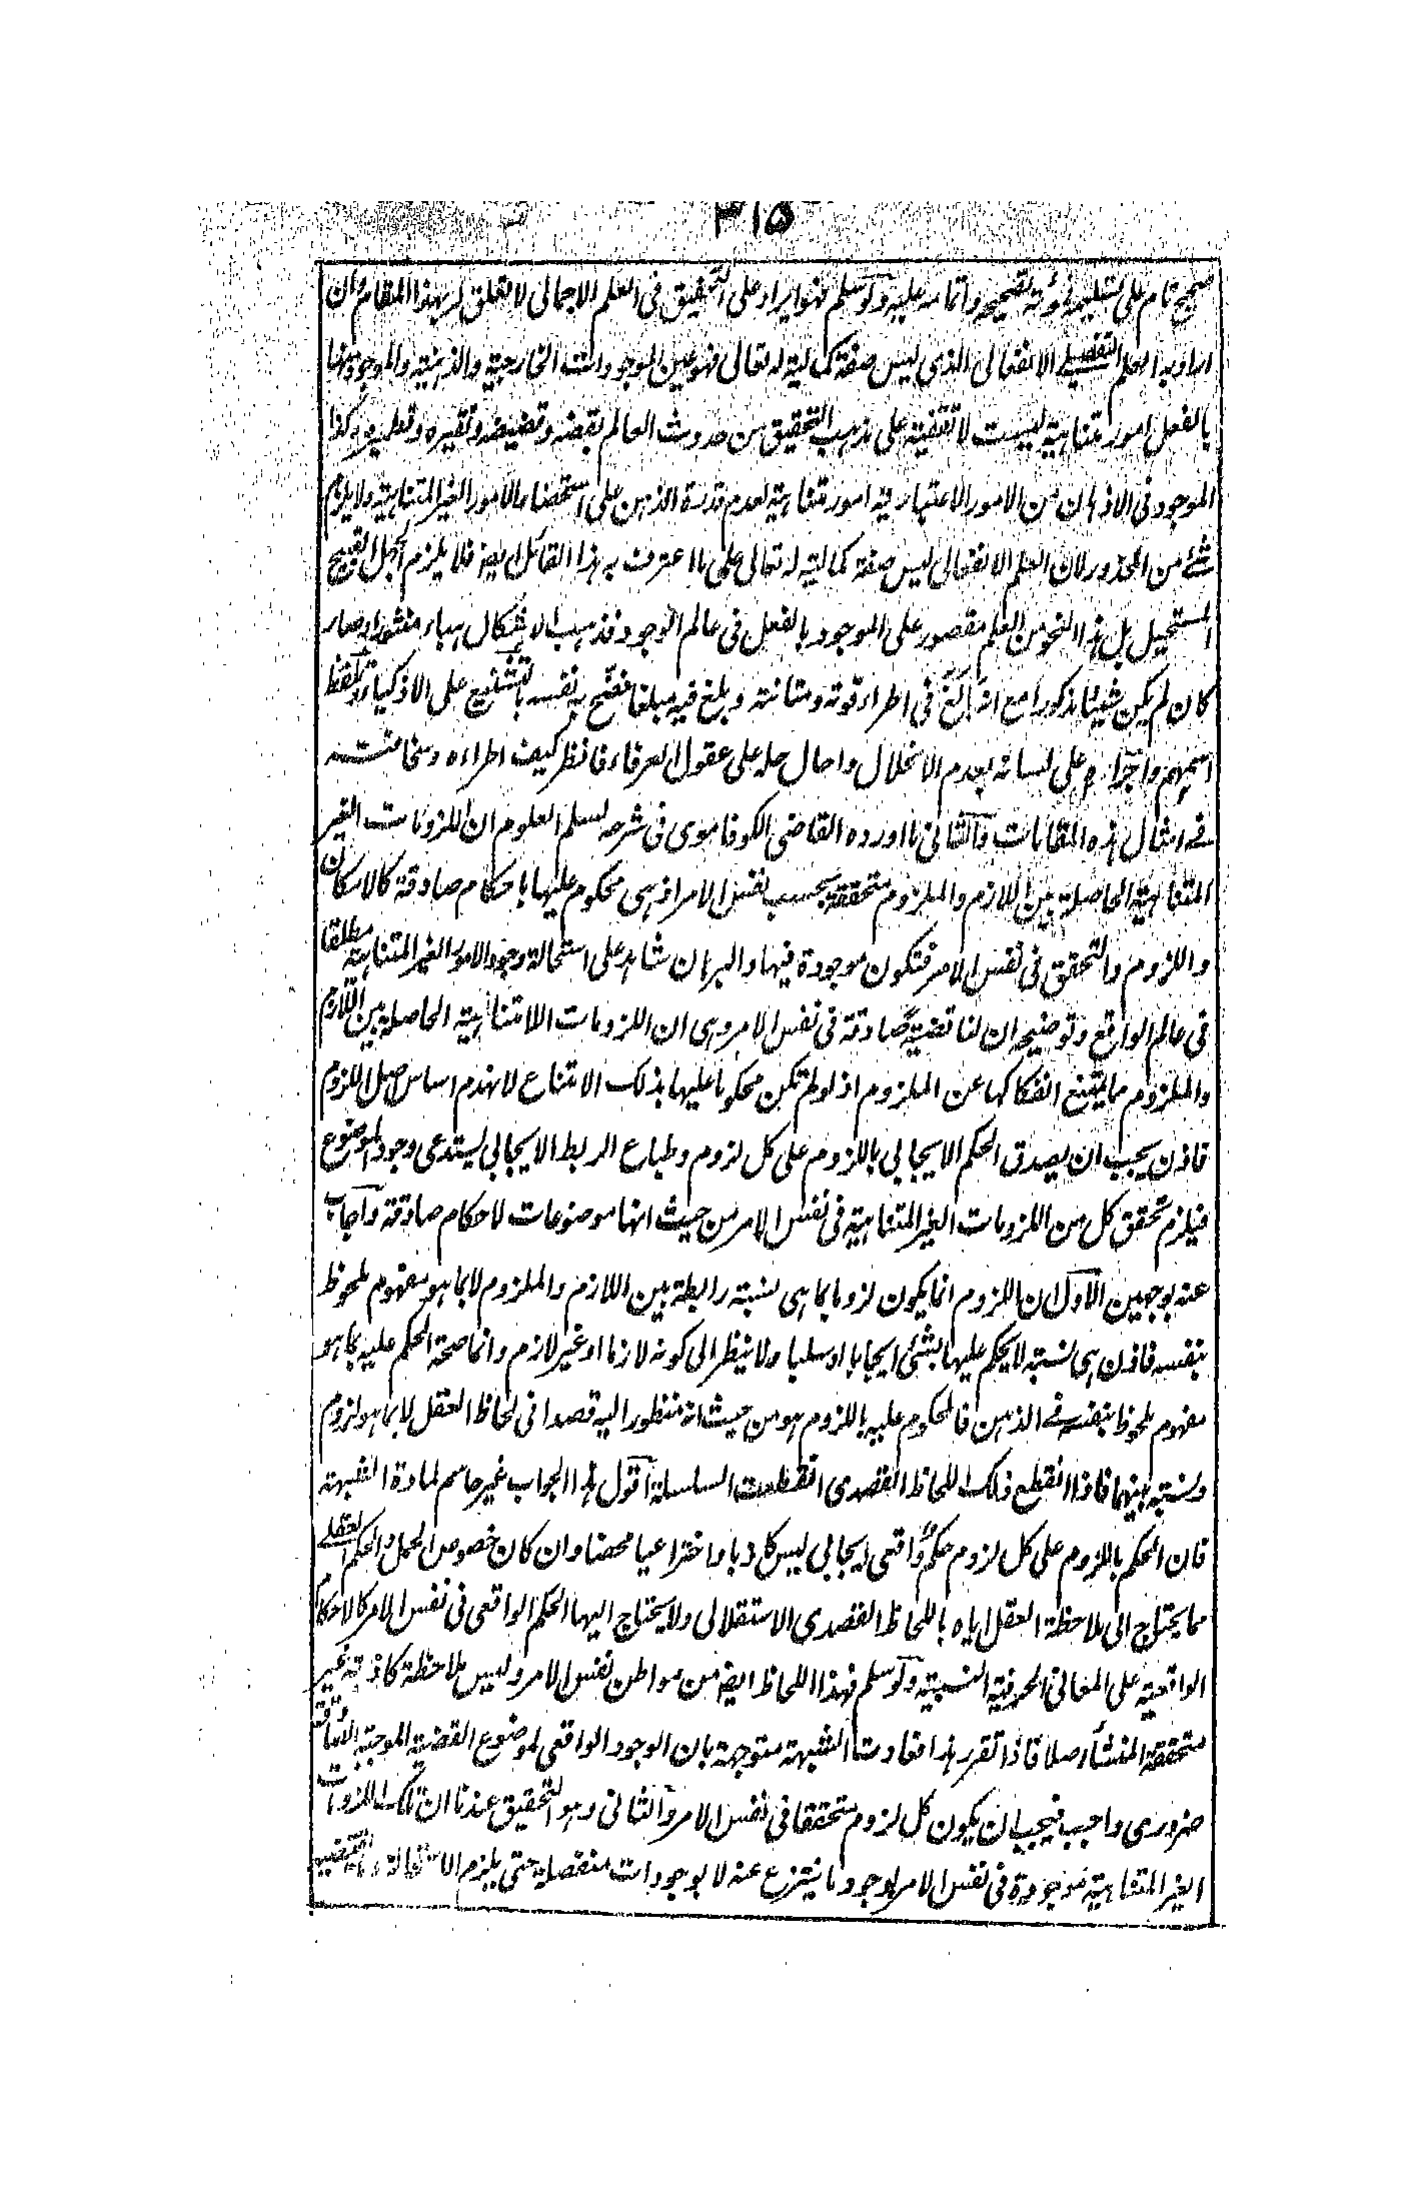 ٣١٥
صحيح تام على تسليمه مؤنة تصحيحه واتمامه عليه ولو سلم فهوايراد على التحقيق فى العلم الاجمالى لا تعلق له بهذا المقام وان
اراد به العلم التفصيلے الانفعالى الذى ليس صفة كمالية له تعالى فهو عين الموجودات الخارجية والذهنية والموجود منها
بالفعل امور متناهية ليست لا تقفية على مذهب التحقيق من حدوث العالم بقضه وقضيضه ونقيره وقطميره وكذا
الموجود فى الاذهان من الامور الاعتبارية امور متناهية لعدم قدرة الذهن على استحضار الامور الغير المتناهية ولا يلزم
شئ من المحذور لان العلم الانفعالى ليس صفة كمالية له تعالى على ما اعترف به هذا القائل ايضا فلا يلزم الجهل القبيح
المستحيل بل هذا النحو من العلم مقصور على الموجود بالفعل فى عالم الوجود فذهب الاشكال هباء منثورا وصار
كان لم يكن شيئا مذكورا مع انه بالغ فى اطراء قوته ومتانته وبلغ فيه مبلغا فضح به نفسه بالتشنيع على الاذكياء وتلفظ
اسمهم واجراءه على لسانه بعدم الانحلال واحال حله على عقول العرفاء فانظر كيف اطراءه وسخافته
فے امثال هذه المقامات والثانى ما اورده القاضى الكوفاموى فى شرحه لسلم العلوم ان اللزومات الغير
المتناهية الحاصلة بين اللازم والملزوم متحققة بحسب نفس الامر اذ هى محكوم عليها باحكام صادقة كالامكان
واللزوم والتحقق فى نفس الامر فتكون موجودة فيها والبرهان شاهد على استحالة وجود الامور الغير المتناهية مطلقا
فى عالم الواقع وتوضيحه ان لنا قضية صادقة فى نفس الامر وهى ان اللزومات اللامتناهية الحاصلة بين اللازم
والملزوم مما يمتنع انفكاكها عن الملزوم اذ لو لم تكن محكوما عليها بذلك الامتناع لانهدم اساس اصل اللزوم
فاذن يجب ان يصدق الحكم الايجابى باللزوم على كل لزوم وطباع الربط الايجابى يستدعى وجود الموضوع
فيلزم تحقق كل من اللزومات الغير المتناهية فى نفس الامر من حيث انها موضوعات لاحكام صادقة واجاب
عنه بوجهين الاول ان اللزوم انما يكون لزوما بما هى نسبة رابطة بين اللازم والملزوم لا بما هو مفهوم ملحوظ
بنفسه فاذن هى نسبة لا يحكم عليها بشئ ايجابا او سلبا ولا ينظر الى كونه لازما او غير لازم وانما صحة الحكم عليه بما هو
مفهوم ملحوظ بنفسه فے الذهن فالمحكوم عليه باللزوم هو من حيث انه منظور اليه قصدا فى لحاظ العقل لا بما هو لزوم
ونسبة بينهما فاذا انقطع ذلك اللحاظ القصدى انقطعت السلسلة اقول هذا الجواب غير حاسم لمادة الشبهة
فان الحكم باللزوم على كل لزوم حكم واقعى ايجابى ليس كاذبا واختراعيا محضا وان كان خصوص الحمل والحكم العقلے
مما يحتاج الى ملاحظة العقل اياه باللحاظ القصدى الاستقلالى ولا يحتاج اليها الحكم الواقعى فى نفس الامر كالاحكام
الواقعية على المعانى الحرفية النسبية ولو سلم فهذا اللحاظ ايضا من مواطن نفس الامر وليس ملاحظة كاذبة غير
متحققة المنشأ اصلا فاذا تقرر هذا فعادت الشبهة متوجهة بان الوجود الواقعى لموضوع القضية الموجبة الصادقة
ضرورى واجب فيجب ان يكون كل لزوم متحققا فى نفس الامر والثانى وهو التحقيق عندنا ان تلك اللزومات
الغير المتناهية موجودة فى نفس الامر بوجود ما ينتزع عنه لا بوجودات منفصلة حتى يلزم الاستحالة